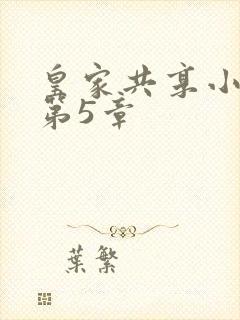 皇家共享小
第5章
葉繁